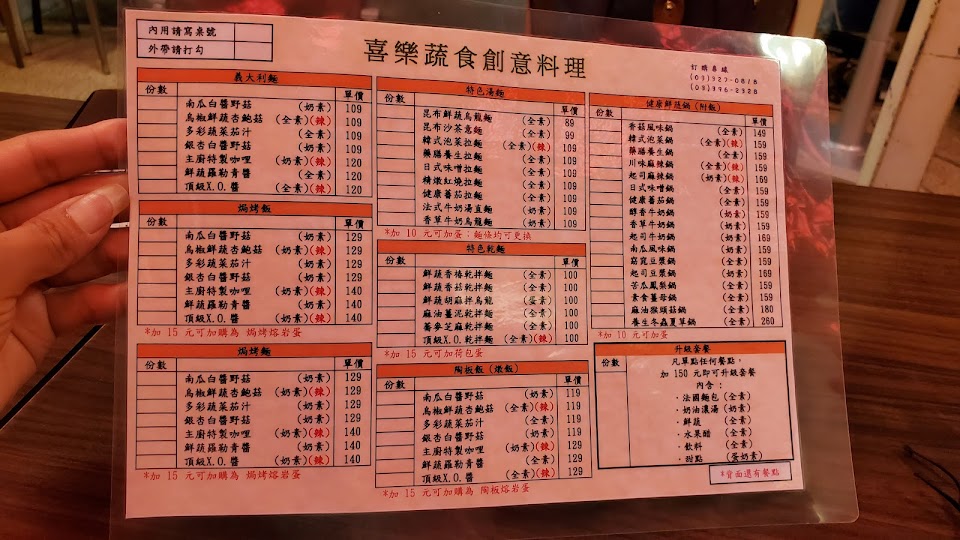 內用請寫桌號
外帶請打勾
喜樂蔬食創意料理
訂購專線
(03)927-0818
(03)996-2328
義大利麵
份數 單價
南瓜白醬野菇 (奶素) 109
烏椒鮮蔬杏鮑菇 (全素)(辣) 109
多彩蔬菜茄汁 (全素) 109
銀杏白醬野菇 (奶素) 109
主廚特製咖哩 (奶素)(辣) 120
鮮蔬羅勒青醬 (全素) 120
頂級X.O.醬 (全素)(辣) 120
焗烤飯
份數 單價
南瓜白醬野菇 (奶素) 129
烏椒鮮蔬杏鮑菇 (奶素)(辣) 129
多彩蔬菜茄汁 (奶素) 129
銀杏白醬野菇 (奶素) 129
主廚特製咖哩 (奶素)(辣) 140
鮮蔬羅勒青醬 (奶素) 140
頂級X.O.醬 (奶素)(辣) 140
*加 15 元可加購為 焗烤熔岩蛋
焗烤麵
份數 單價
南瓜白醬野菇 (奶素) 129
烏椒鮮蔬杏鮑菇 (奶素)(辣) 129
多彩蔬菜茄汁 (奶素) 129
銀杏白醬野菇 (奶素) 129
主廚特製咖哩 (奶素)(辣) 140
鮮蔬羅勒青醬 (奶素) 140
頂級X.O.醬 (奶素)(辣) 140
*加 15 元可加購為 焗烤熔岩蛋
特色湯麵
份數 單價
昆布鮮蔬烏龍麵 (全素) 89
昆布沙茶意麵 (全素) 99
韓式泡菜拉麵 (全素)(辣) 109
藥膳養生拉麵 (全素) 109
日式味噌拉麵 (全素) 109
精燉紅燒拉麵 (全素) 109
健康蕃茄拉麵 (全素) 109
法式牛奶湯直麵 (奶素) 109
香草牛奶烏龍麵 (奶素) 109
*加 10 元可加蛋；麵條均可更換
特色乾麵
份數 單價
鮮蔬香椿乾拌麵 (全素) 100
鮮蔬香菇乾拌麵 (全素) 100
鮮蔬胡麻拌烏龍 (蛋素) 100
麻油薑泥乾拌麵 (全素) 100
蕎麥芝麻乾拌麵 (全素) 100
頂級X.O.乾拌麵 (全素)(辣) 100
*加 15 元可加荷包蛋
陶板飯（燉飯）
份數 單價
南瓜白醬野菇 (奶素) 119
烏椒鮮蔬杏鮑菇 (全素)(辣) 119
多彩蔬菜茄汁 (全素) 119
銀杏白醬野菇 (奶素) 119
主廚特製咖哩 (奶素)(辣) 129
鮮蔬羅勒青醬 (全素) 129
頂級X.O.醬 (全素)(辣) 129
*加 15 元可加購為 陶板熔岩蛋
健康鮮蔬鍋（附飯）
份數 單價
香菇風味鍋 (全素) 149
韓式泡菜鍋 (全素)(辣) 159
藥膳養生鍋 (全素) 159
川味麻辣鍋 (全素)(辣) 159
起司麻辣鍋 (奶素)(辣) 169
日式味噌鍋 (全素) 159
健康蕃茄鍋 (全素) 159
醇香牛奶鍋 (奶素) 159
香草牛奶鍋 (奶素) 159
起司牛奶鍋 (奶素) 169
南瓜風味鍋 (奶素) 159
窈窕豆漿鍋 (全素) 159
起司豆漿鍋 (奶素) 169
苦瓜鳳梨鍋 (全素) 159
素食薑母鍋 (全素) 159
麻油猴頭菇鍋 (全素) 180
養生冬蟲夏草鍋 (全素) 260
*加 10 元可加蛋
升級套餐
份數 凡單點任何餐點，
加 150 元即可升級套餐
內含：
．法國麵包 (全素)
．奶油濃湯 (奶素)
．鮮蔬 (全素)
．水果醋 (全素)
．飲料 (全素)
．甜點 (蛋奶素)
*背面還有餐點